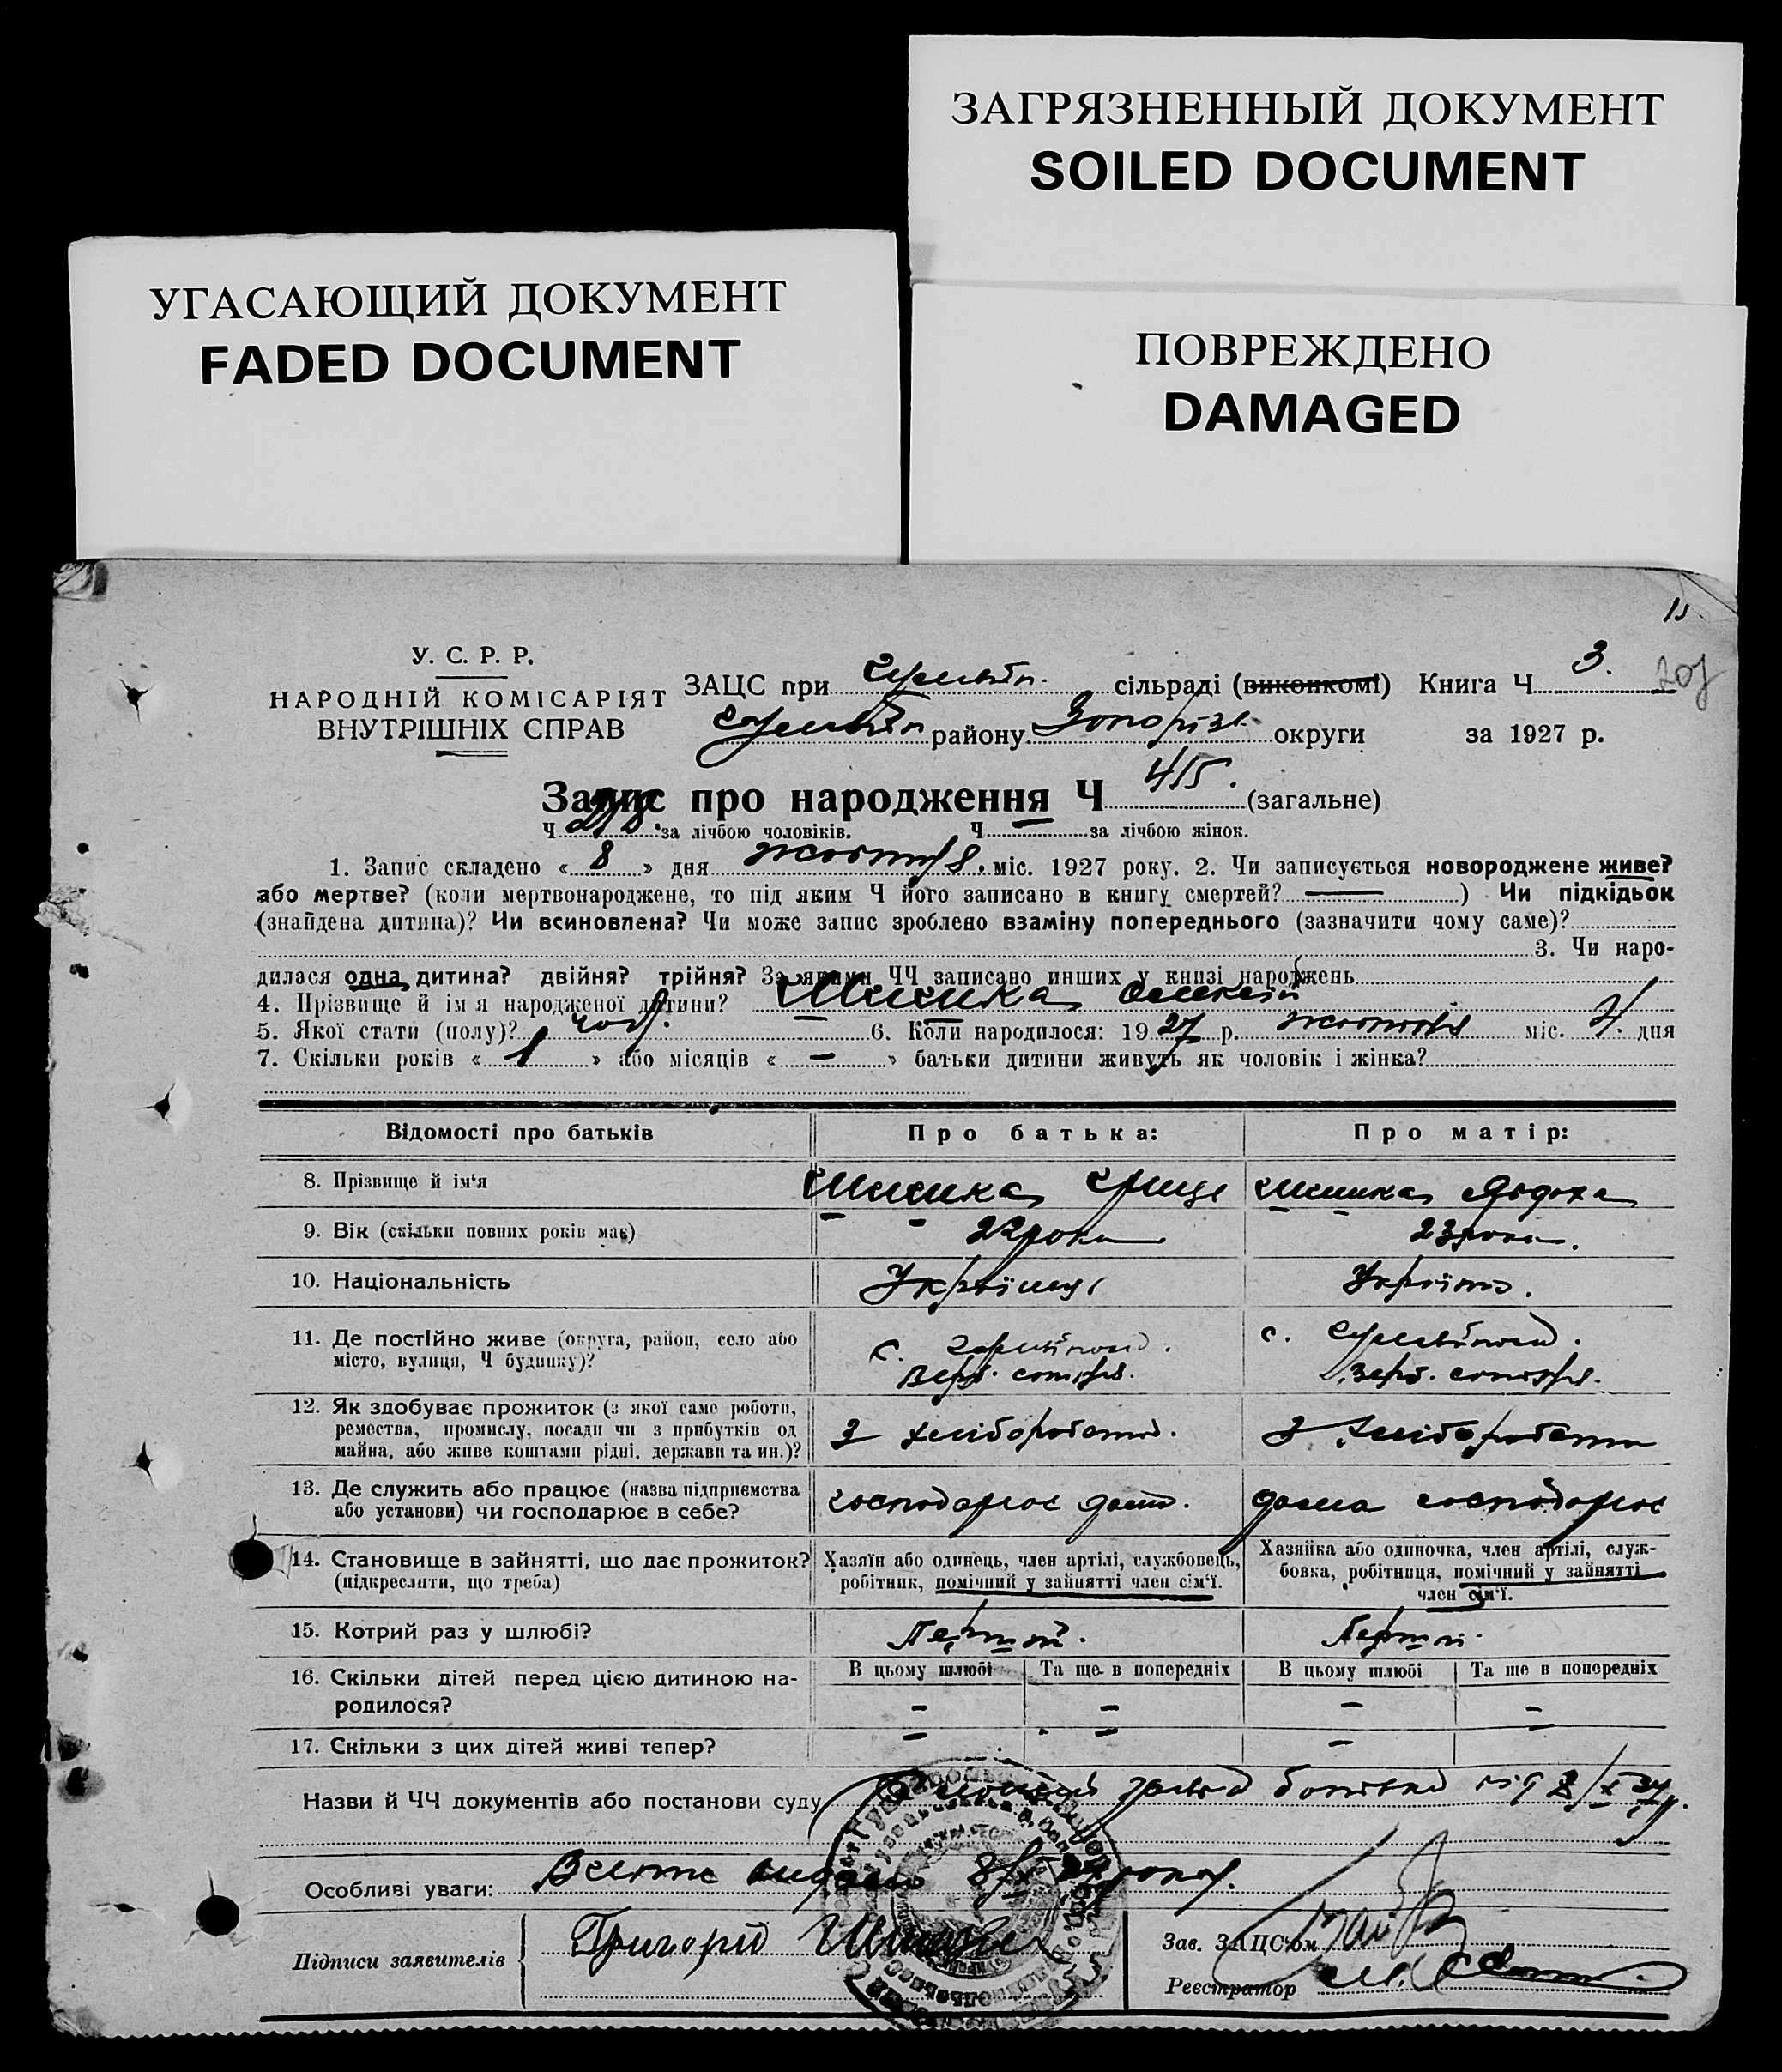 ЗАГРЯЗНЕННЫЙ ДОКУМЕНТ
SOILED DOCUMENT
УГАСАЮЩИЙ ДОКУМЕНТ
FADED DOCUMENT
ПОВРЕЖДЕНО
DAMAGED
У. С. Р. Р.
НАРОДНІЙ КОМІСАРІЯТ
ВНУТРІШНІХ СПРАВ
ЗАЦС при сільраді (виконкомі) Книга Ч 3.
району Запоріз. округи за 1927 р.
Запис про народження Ч 415. (загальне)
Ч за лічбою чоловіків. Ч — за лічбою жінок.
1. Запис складено « 8 » дня жовтня. міс. 1927 року. 2. Чи записується новороджене живе?
або мертве? (коли мертвонароджене, то під яким Ч його записано в книгу смертей? —) Чи підкідьок
(знайдена дитина)? Чи всиновлена? Чи може запис зроблено взаміну попереднього (зазначити чому саме)?
3. Чи наро-
дилася одна дитина? двійня? трійня? За якими ЧЧ записано инших у книзі народжень
4. Прізвище й ім'я народженої дитини? Шишка Олексій
5. Якої стати (полу)? чол. 6. Коли народилося: 1927 р. жовтня міс. дня
7. Скільки років « 1 » або місяців « — » батьки дитини живуть як чоловік і жінка?
Відомості про батьків Про батька: Про матір:
8. Прізвище й ім'я Шишка Гриць Шишка Явдоха
9. Вік (скільки повних років має) 22 роки 23 роки.
10. Національність Українець Українка.
11. Де постійно живе (округа, район, село або
місто, вулиця, Ч будинку)?
с. с.
12. Як здобуває прожиток (з якої саме роботи,
ремества, промислу, посади чи з прибутків од
майна, або живе коштами рідні, держави та ин.)?
З хліборобства. З хліборобства
13. Де служить або працює (назва підприємства
або установи) чи господарює в себе?
господарює дома. дома господарює
14. Становище в зайнятті, що дає прожиток?
(підкреслити, що треба)
Хазяїн або одинець, член артілі, службовець,
робітник, помічний у зайнятті член сім'ї.
Хазяйка або одиночка, член артілі, служ-
бовка, робітниця, помічний у зайнятті
член сім'ї.
15. Котрий раз у шлюбі? Перший. Перший.
16. Скільки дітей перед цією дитиною на-
родилося?
В цьому шлюбі Та ще в попередніх В цьому шлюбі Та ще в попередніх
— — — —
17. Скільки з цих дітей живі тепер? — — — —
Назви й ЧЧ документів або постанови суду заява батька від 8/X 27 р.
Особливі уваги: Витяг видано 8/X 27 року.
Підписи заявителів Григорій Шишка
Зав. ЗАЦС'ом
Реєстратор